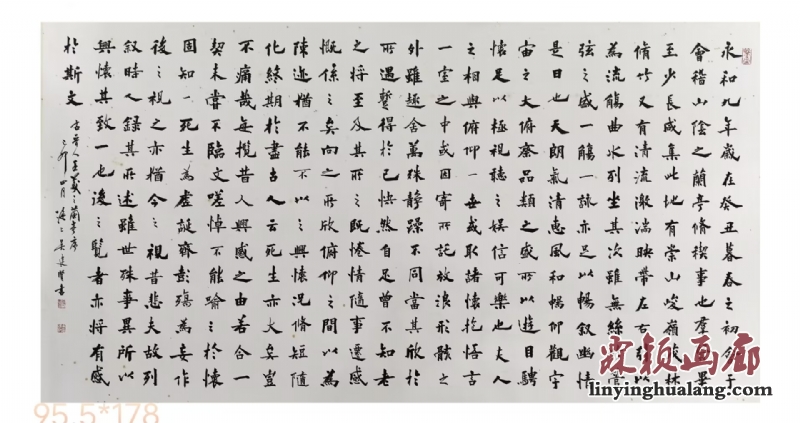 永和九年歲在癸丑暮春之初于
會稽山陰之蘭亭脩禊事也羣畢
至少長咸集此地有崇山峻嶺茂林
脩竹又有清流激湍映帶左右以
為流觴曲水列坐其次雖無絲
弦之盛一觴一詠亦足以暢敘幽情
是日也天朗氣清惠風和暢仰觀宇
宙之大俯察品類之盛所以遊目騁
懷足以極視聽之娛信可樂也夫人
之相與俯仰一世或取諸懷抱悟言
一室之中或因寄所託放浪形骸之
外雖趣舍萬殊靜躁不同當其欣於
所遇暫得於己怏然自足曾不知老
之將至及其所之既惓情隨事遷感
慨係之矣向之所欣俯仰之間以為
陳迹猶不能不以之興懷況脩短隨
化終期於盡古人云死生亦大矣豈
不痛哉每攬昔人興感之由若合一
契未嘗不臨文嗟悼不能喻之於懷
固知一死生為虛誕齊彭殤為妄作
後之視之亦猶今之視昔悲夫故列
敘時人錄其所述雖世殊事異所以
興懷其致一也後之覽者亦將有感
於斯文
王羲之蘭亭序
四月
霖颖画廊
linyinghualang.com
95.5*178